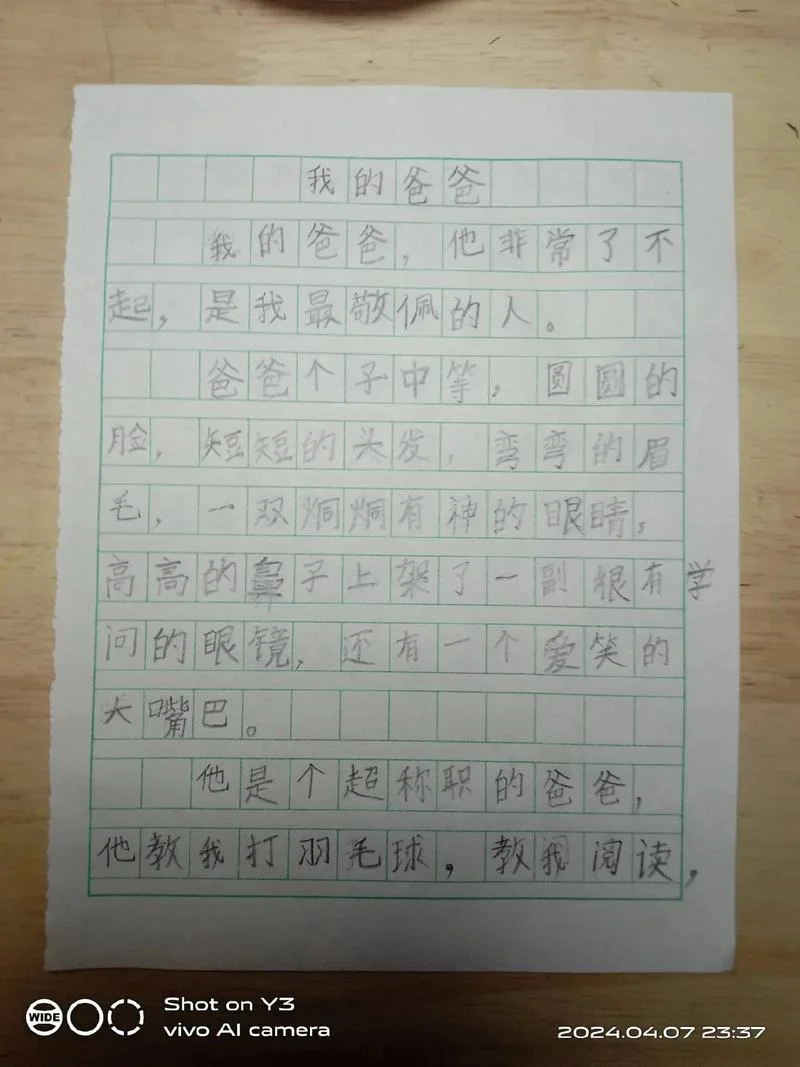 我的爸爸
我的爸爸，他非常了不
起，是我最敬佩的人。
爸爸个子中等，圆圆的
脸，短短的头发，弯弯的眉
毛，一双炯炯有神的眼睛，
高高的鼻子上架了一副很有学
问的眼镜，还有一个爱笑的
大嘴巴。
他是个超称职的爸爸，
他教我打羽毛球，教我阅读，
WIDE
Shot on Y3
vivo AI camera
2024.04.07 23:37